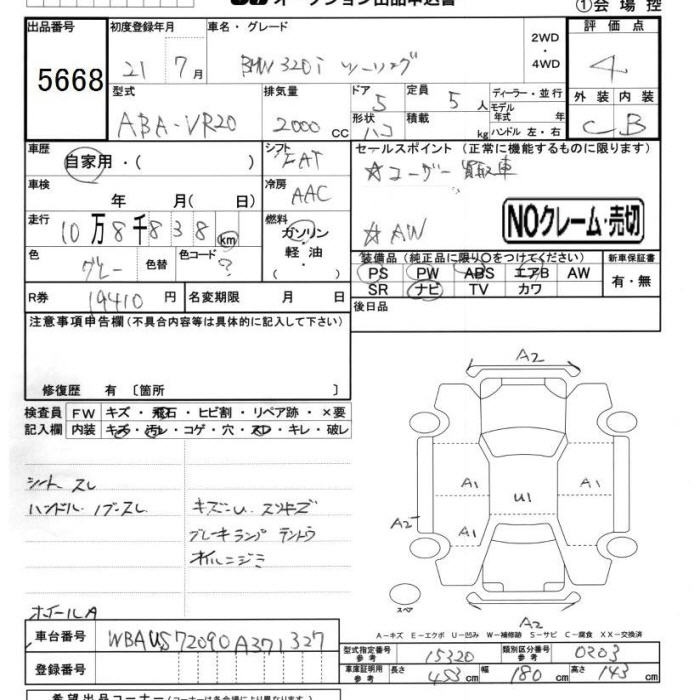 オークション出品申込書
①会場控
出品番号
5668
初度登録年月
21 7月
車名・グレード
BMW 320i ツーリング
2WD
・
4WD
評価点
4
外装 内装
C B
型式
ABA-VR20
排気量
2000 CC
ドア
5
形状
ハコ
定員
5 人
積載
kg
ディーラー・並行
モデル年式 年式
ハンドル 左・右
車歴
自家用・( )
シフト
FAT
車検
年 月( 日)
冷房
AAC
走行
10万8千838 km
燃料
ガソリン・
軽油
( )
色
グレー
色替
色コード
?
R券
19410 円
名変期限 月 日
セールスポイント(正常に機能するものに限ります)
☆ユーザー買取車
☆AW
NOクレーム・売切
装備品(純正品に限り○をつけてください)
PS PW ABS エアB AW
SR ナビ TV カワ
新車保証書
有・無
後日品
注意事項申告欄(不具合内容等は具体的に記入して下さい)
修復歴 有〔箇所 〕
検査員
記入欄
FW キズ・飛石・ヒビ割・リペア跡・×要
内装 キズ・汚レ・コゲ・穴・スレ・キレ・破レ
シート スレ
ハンドル ノブースレ
キズ-U スリキズ
ブレーキランプ テントウ
オイルニジミ
ホイールA
A2
A1
A1
U1
A2
A1
スペア
A2
A-キズ E-エクボ U-凹み W-補修跡 S-サビ C-腐食 XX-交換済
車台番号
WBAUS72090A371327
登録番号
型式指定番号
参考
15320
類別区分番号
参考
0203
車庫証明用
参考
長さ
453cm
幅
180cm
高さ
143cm
希望出品コーナー(コーナーは各会場により異なります。)